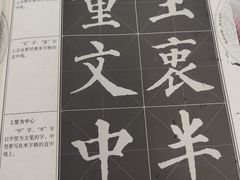 里 主
"文"字、"衷"字
上点要写在米字格的直
中线。
文 衷
2.竖为中心
"中"字、"半"字
以中竖为主笔的字，中
竖要写在米字格的直中
线上。
中 半